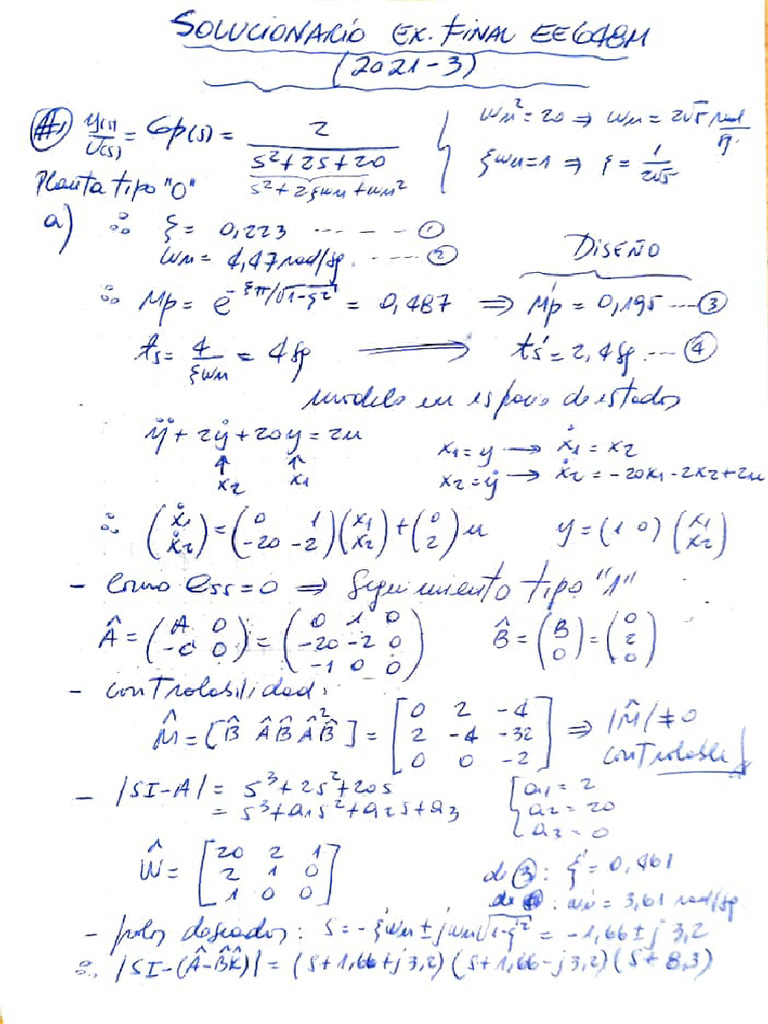 SOLUCIONARIO EX. FINAL EE648M
(2021-3)
#1 Y(s)/U(s) = Gp(s) = 2/(s²+2s+20) { ωn² = 20 ⇒ ωn = 2√5 rad/sg.
s²+2ξωn+ωn² ξωn=1 ⇒ ξ = 1/(2√5)
Planta tipo "0"
a) ∴ ξ = 0,223 ------ ①
ωn = 4,47 rad/sg. ---- ② DISEÑO
∴ Mp = e^(-ξπ/√(1-ξ²)) = 0,487 ⇒ Mp' = 0,195 ---- ③
ts = 4/(ξωn) = 4 sg ⟶ ts' = 2,4 sg. --- ④
modelo en espacio de estados
ÿ + 2ẏ + 20y = 2u x1 = y → ẋ1 = x2
↑ ↑ x2 = ẏ → ẋ2 = -20x1 - 2x2 + 2u
x2 x1
∴ (ẋ1; ẋ2) = (0 1; -20 -2)(x1; x2) + (0; 2) u y = (1 0)(x1; x2)
- Como ess = 0 ⇒ Seguimiento tipo "1"
Â = (A 0; -C 0) = (0 1 0; -20 -2 0; -1 0 0) B̂ = (B; 0) = (0; 2; 0)
- controlabilidad:
M̂ = [B̂ ÂB̂ Â²B̂] = [0 2 -4; 2 -4 -32; 0 0 -2] ⇒ |M̂| ≠ 0
controlable
- |SI-A| = s³+2s²+20s { a1 = 2
= s³+a1s²+a2s+a3 a2 = 20
a3 = 0
Ŵ = [20 2 1; 2 1 0; 1 0 0] de ③: ξ' = 0,461
de ④: ωn' = 3,61 rad/sg.
- polos deseados: s = -ξωn ± jωn√(1-ξ²) = -1,66 ± j 3,2
∴ |SI-(Â-B̂K̂)| = (s+1,66+j3,2)(s+1,66-j3,2)(s+8,3)